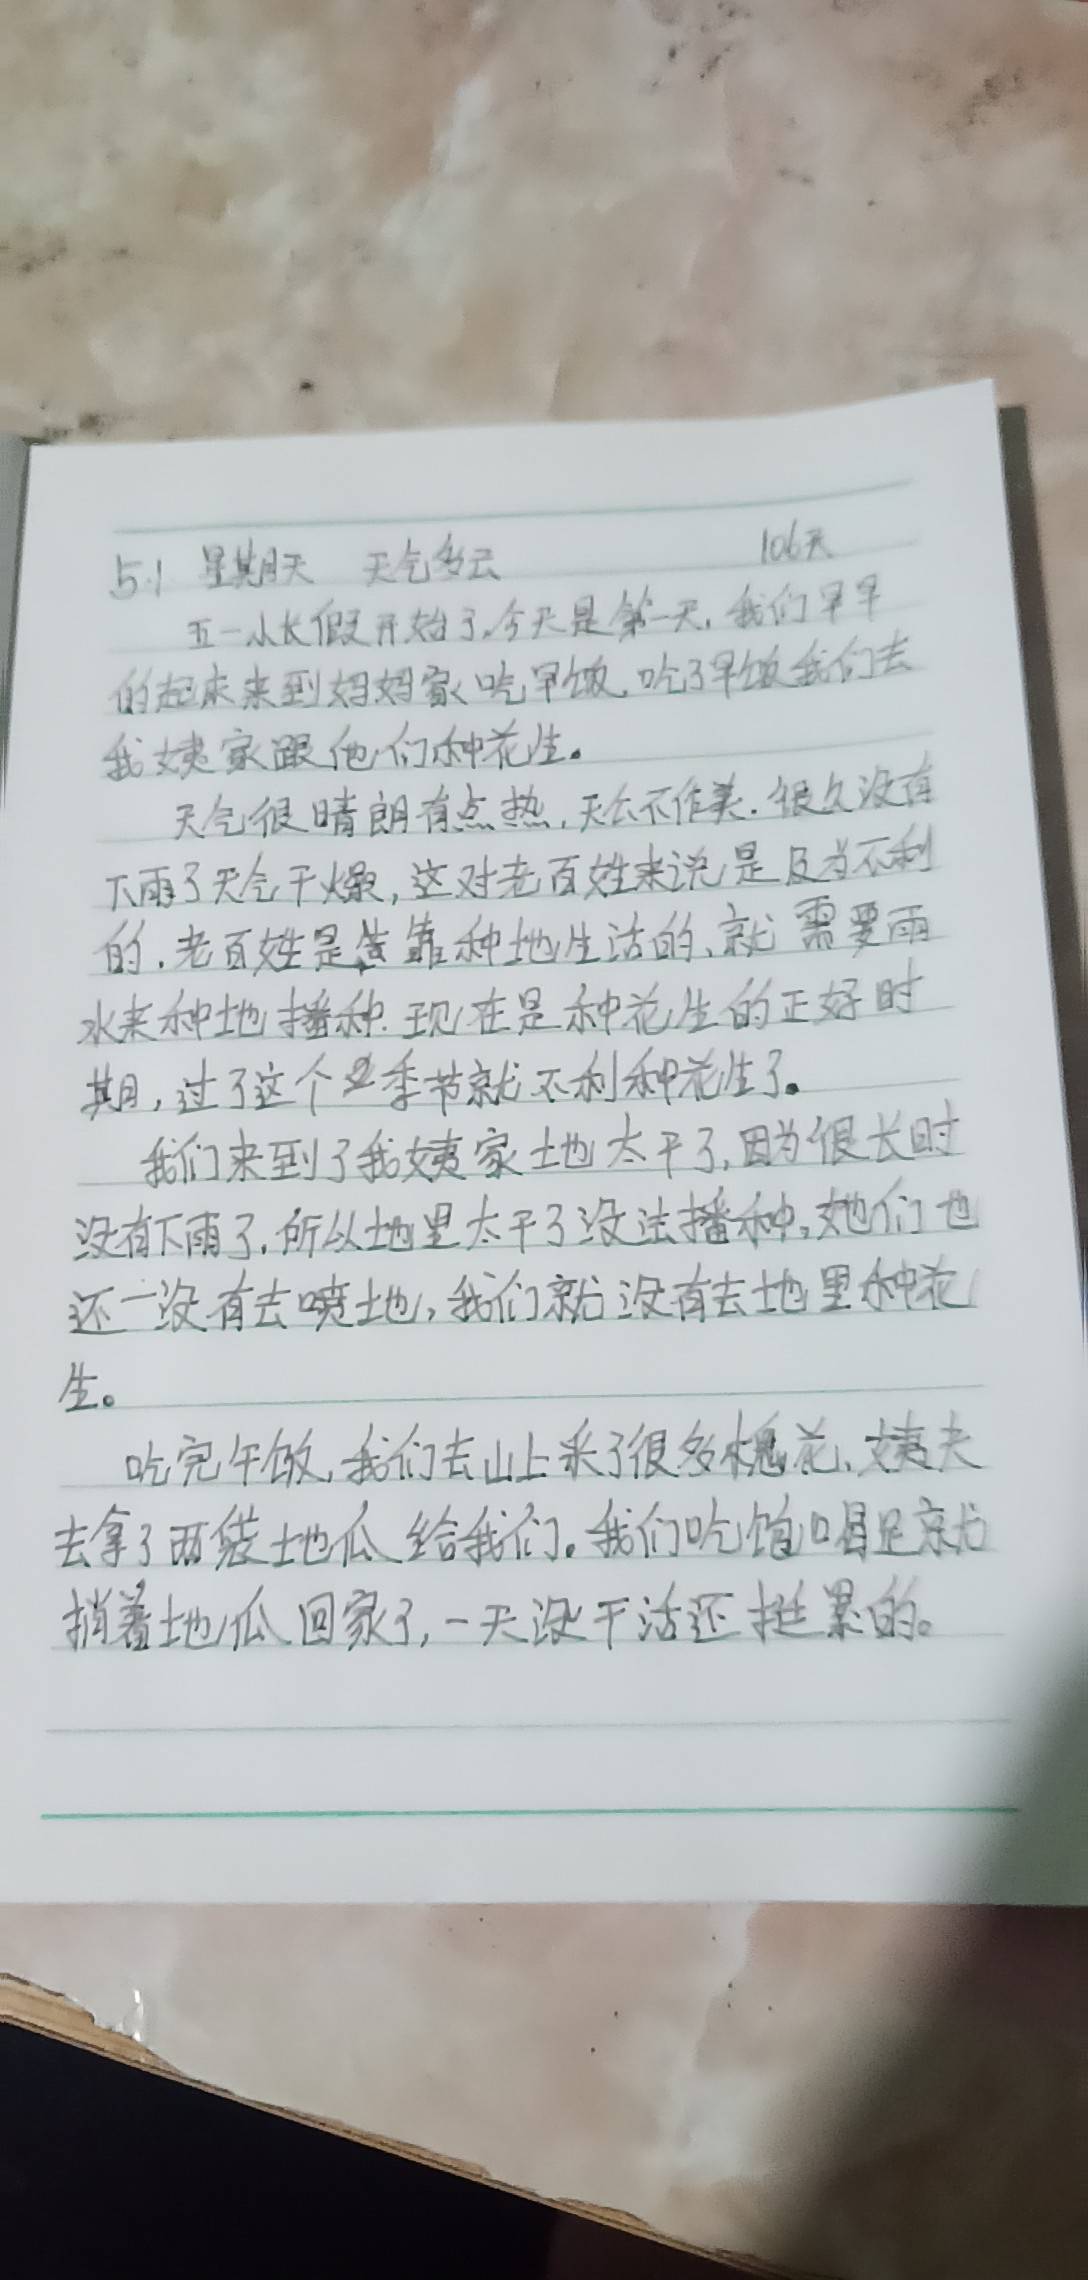 5.1 星期天 天气多云 106天
五一小长假开始了,今天是第一天,我们早早
的起床来到妈妈家吃早饭,吃了早饭我们去
我姨家跟他们种花生。
天气很晴朗有点热,天公不作美.很久没有
下雨了天气干燥,这对老百姓来说是及为不利
的.老百姓是靠种地生活的、就需要雨
水来种地播种.现在是种花生的正好时
期,过了这个季节就不利种花生了。
我们来到了我姨家土地太干了,因为很长时
没有下雨了,所以地里太干了没法播种,她们也
还没有去喷地,我们就没有去地里种花
生。
吃完午饭,我们去山上采了很多槐花、姨夫
去拿了两袋地瓜给我们。我们吃饱喝足就
捎着地瓜回家了,一天没干活还挺累的。